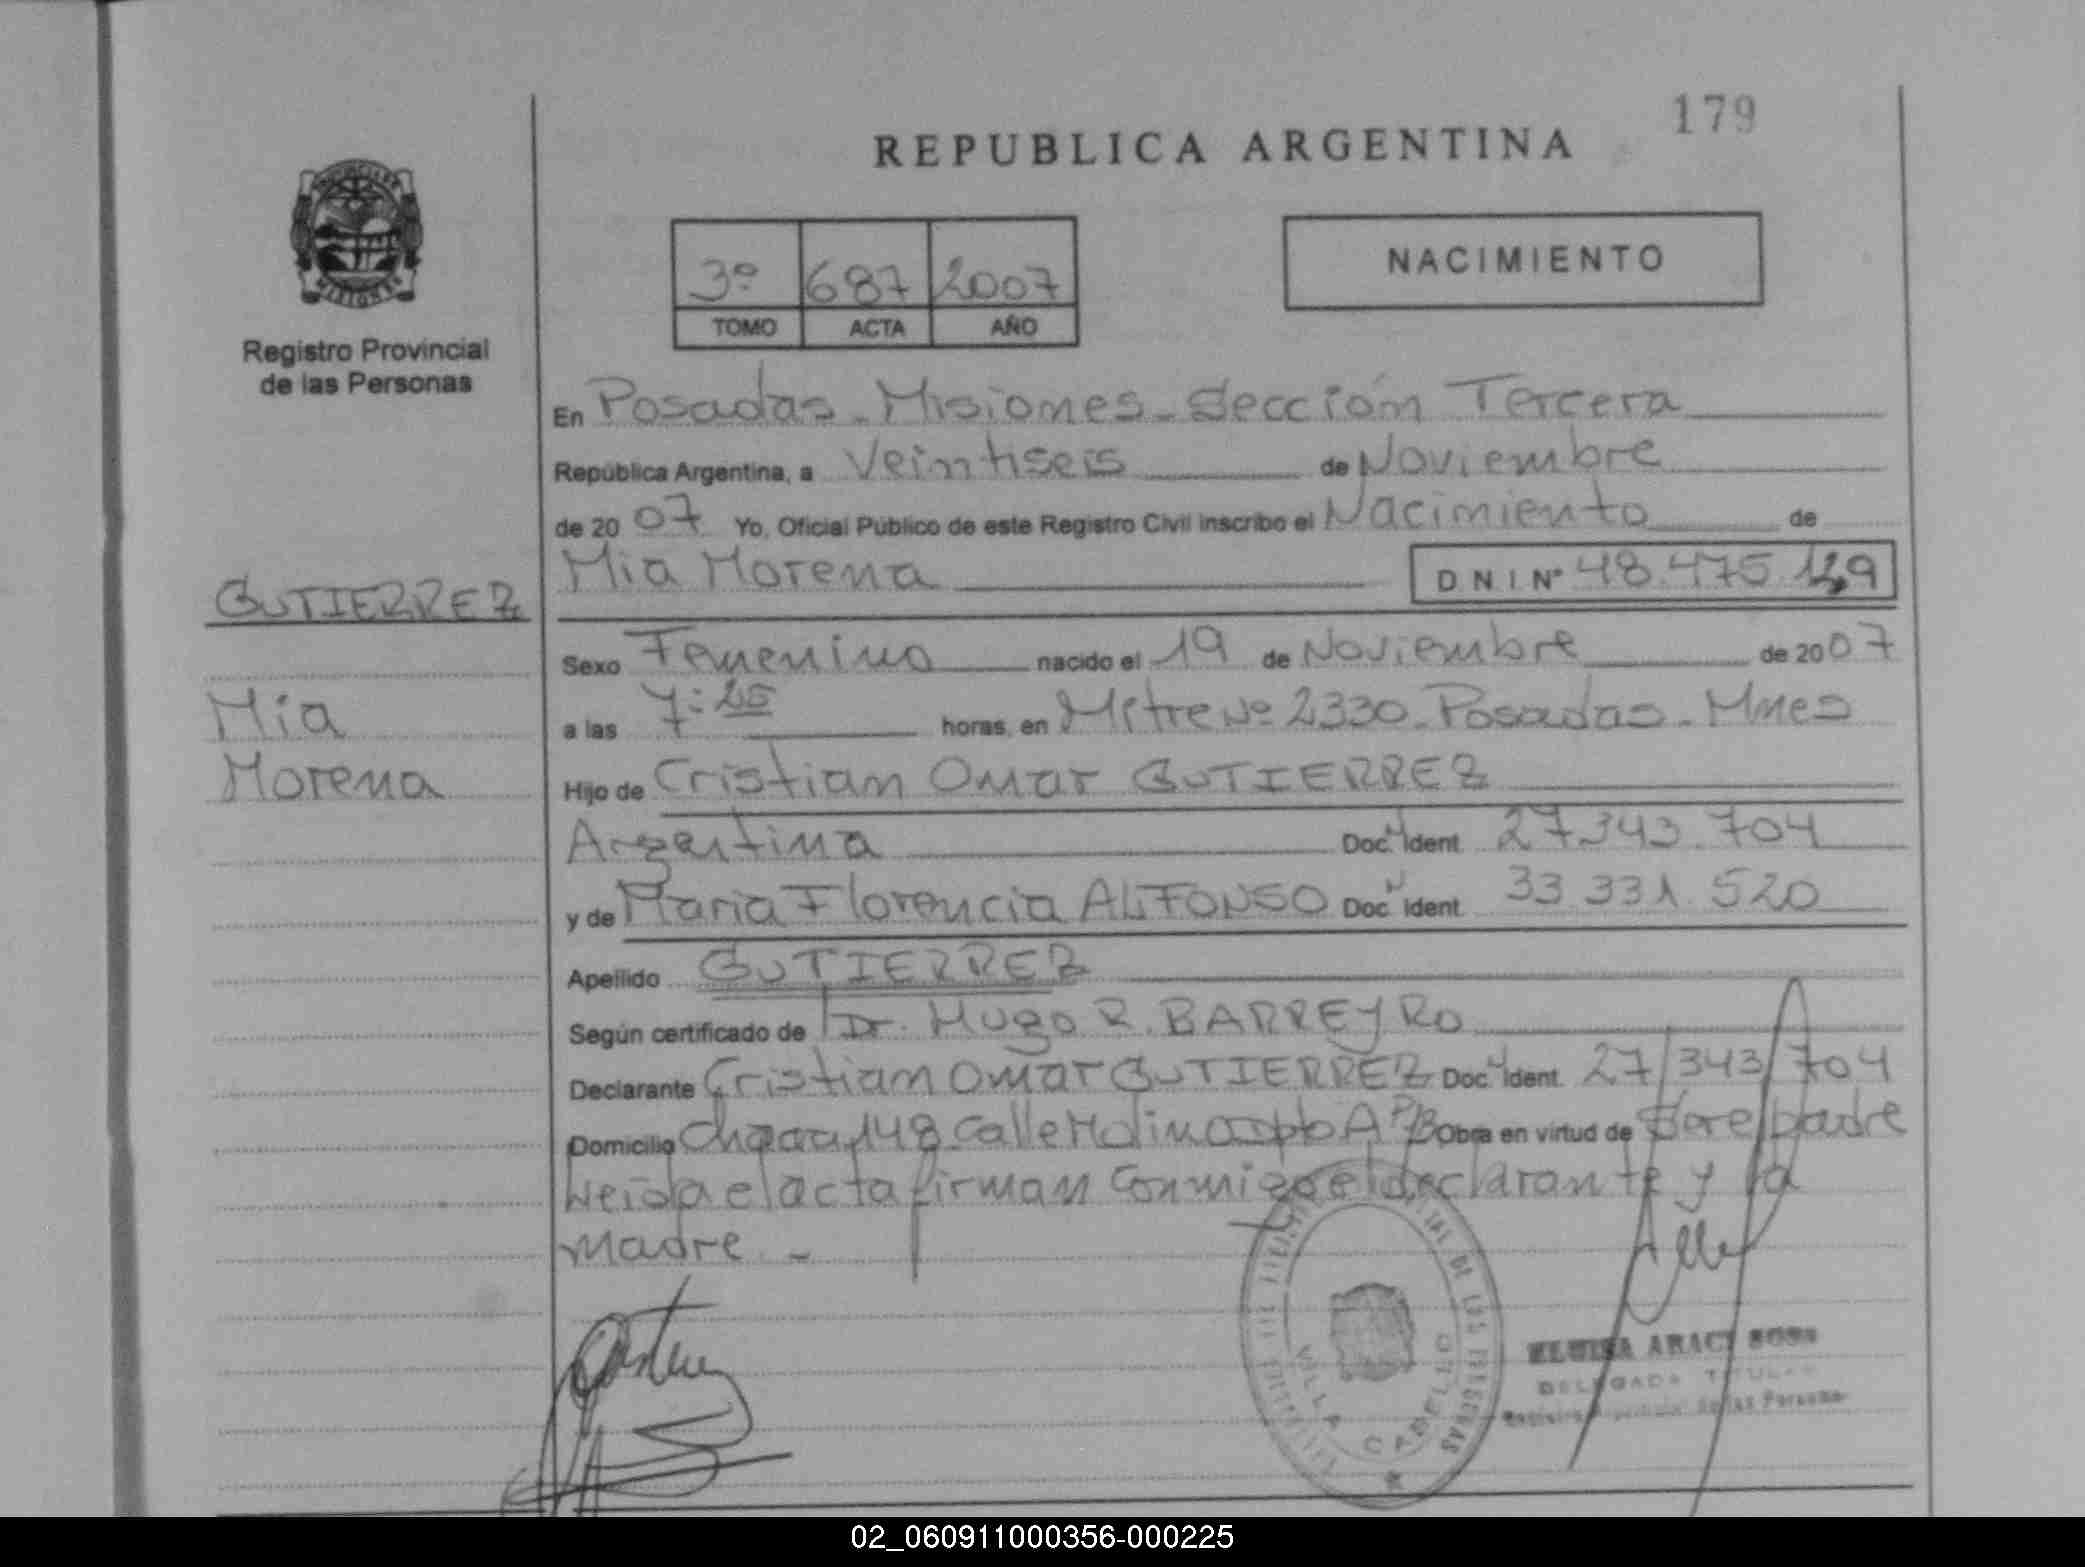 179
REPUBLICA ARGENTINA
3º 687 2007
TOMO ACTA AÑO
NACIMIENTO
Registro Provincial
de las Personas
En Posadas - Misiones - Sección Tercera
República Argentina, a Veintiseis de Noviembre
de 20 07 Yo, Oficial Público de este Registro Civil inscribo el Nacimiento de
Mia Morena D N I Nº 48.475.
GUTIERREZ
Mia
Morena
Sexo Femenino nacido el 19 de Noviembre de 2007
a las 7:25 horas, en Mitre Nº 2330 - Posadas - Mnes
Hijo de Cristian Omar GUTIERREZ
Argentina Doc. Ident. 27.343.704
y de Maria Florencia ALFONSO Doc. Ident. 33.331.520
Apellido GUTIERREZ
Según certificado de Dr. Hugo R. BARREYRO
Declarante Cristian Omar GUTIERREZ Doc. Ident. 27/343/704
Domicilio Chacra 148 Calle Molina Obra en virtud de Ser el padre
Leida el acta firman Conmigo el declarante y la
madre. -
DE LAS PERSONAS
VILLA CABELLO
ARACI SOSA
DELEGADA TITULAR
de las Personas
02_060911000356-000225